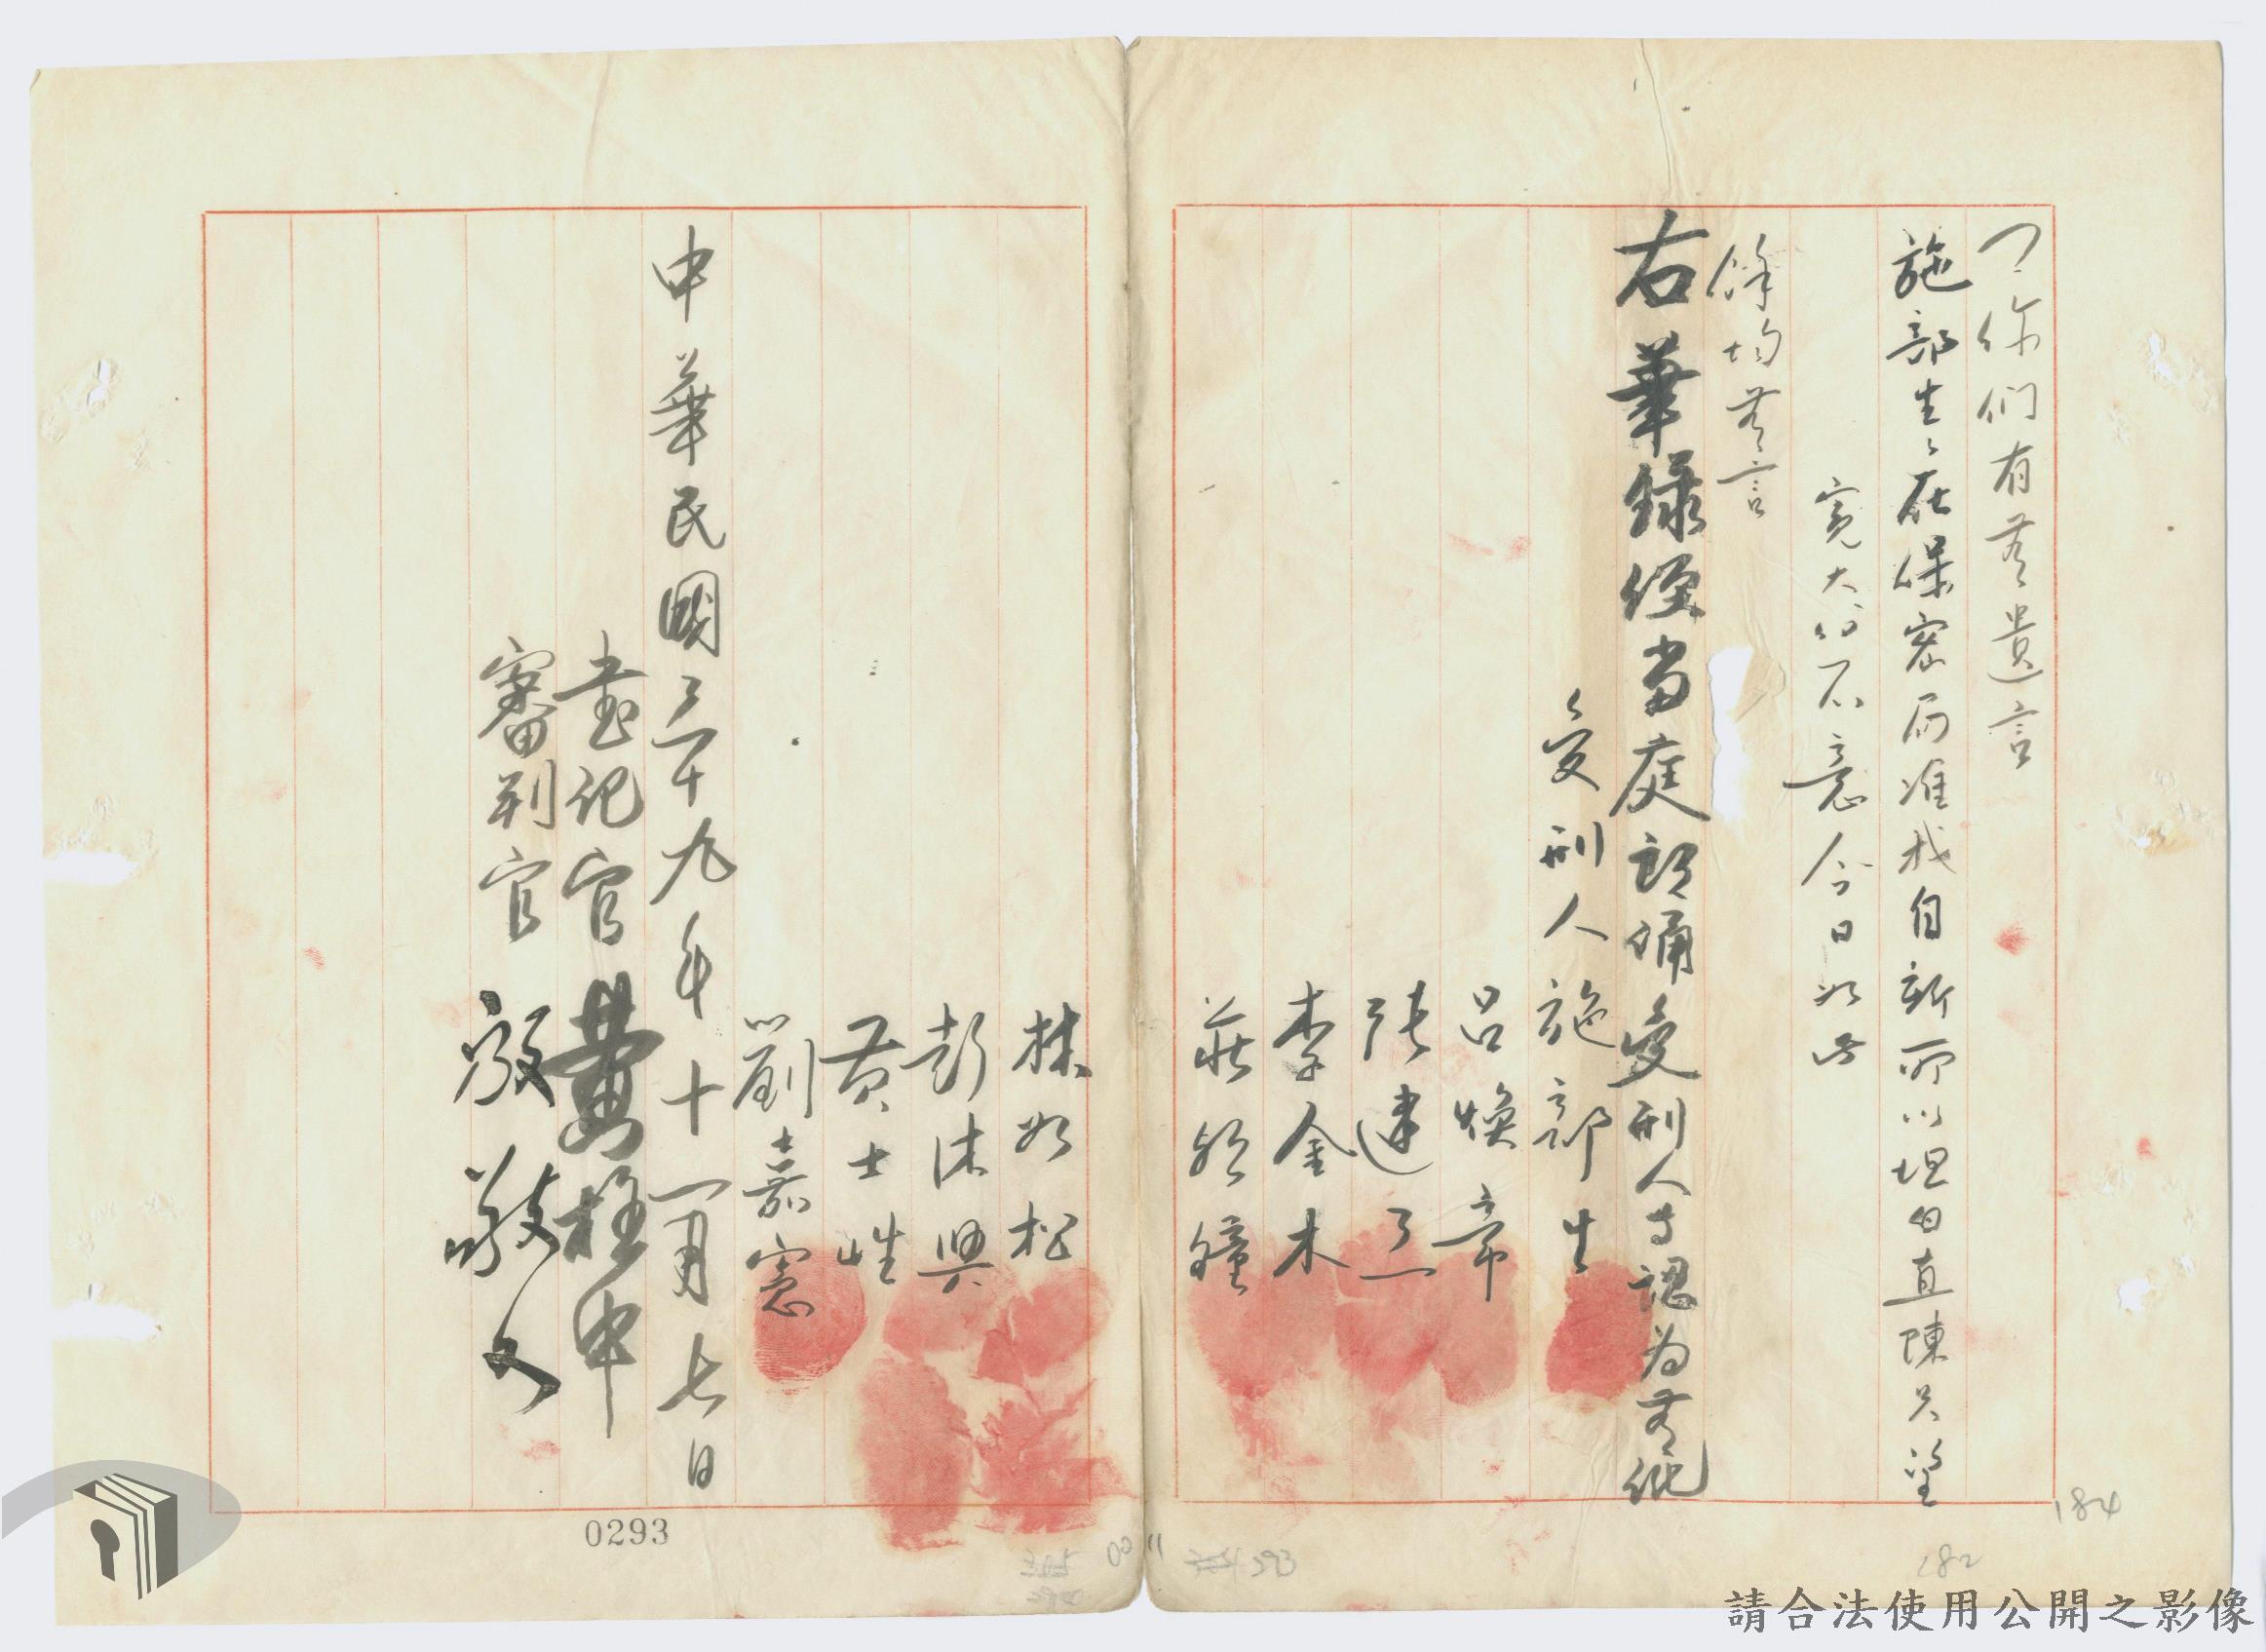 問：你們有無遺言
施部生：在保密局准我自新所以坦白直陳只望
寬大的不意今日如此
餘均無言
右筆錄經當庭朗誦受刑人等認為無訛
受刑人施部生
呂煥章
張建三
李金木
莊朝鐘
林如松
彭沐興
黃士性
劉嘉憲
中華民國三十九年十一月七日
書記官 黃
審判官 殷敬文
0293
184
182
293
請合法使用公開之影像